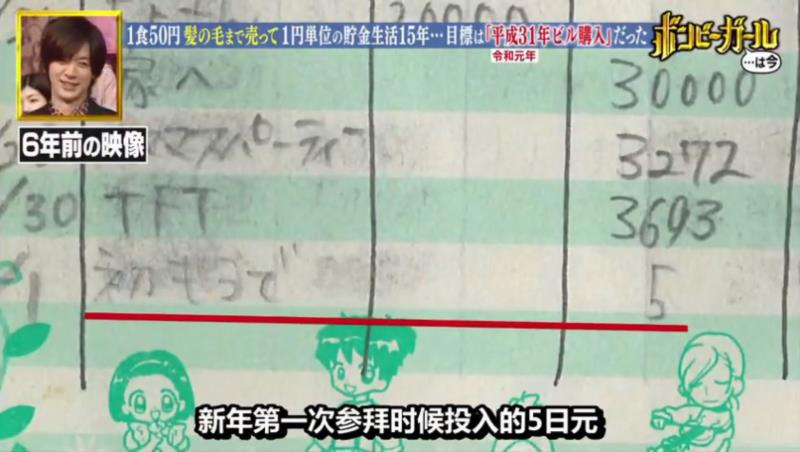 1食50円 髪の毛まで売って1円単位の貯金生活15年…目標は「平成31年ビル購入」だった
令和元年
ボンビーガール
…は今
6年前の映像
家へ
30000
マスパーティ
3272
/30 TFT
3693
初もうで
5
新年第一次参拜时候投入的5日元